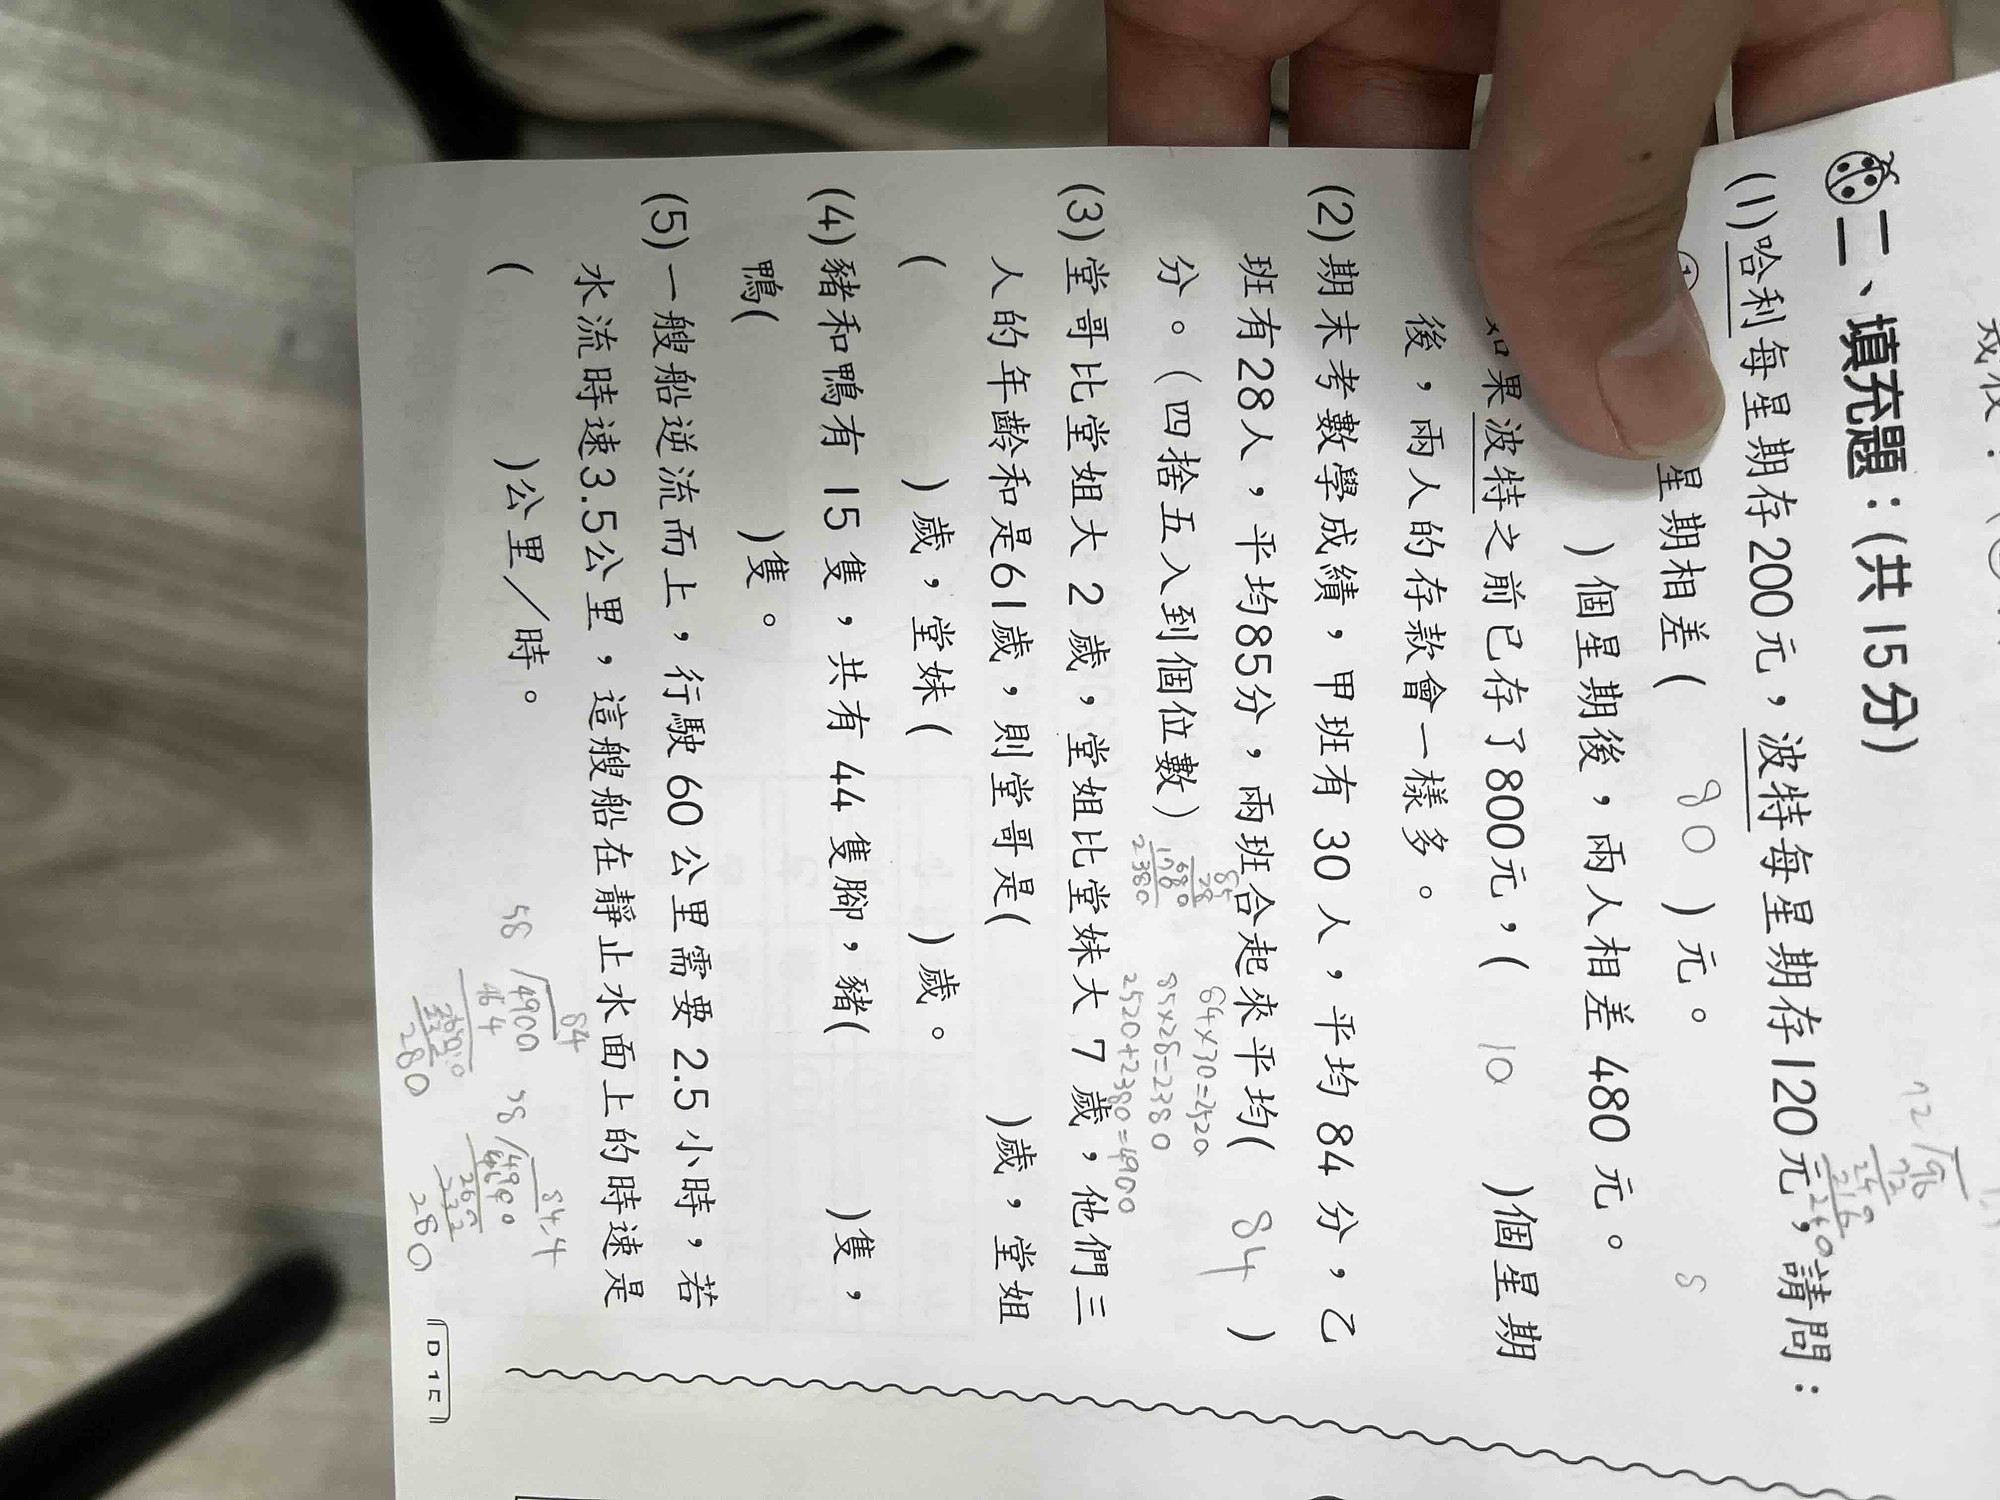 二、填充題：(共15分)
(1)哈利每星期存200元，波特每星期存120元，請問：
① 星期相差( 80 )元。
)個星期後，兩人相差480元。
如果波特之前已存了800元，( 10 )個星期
後，兩人的存款會一樣多。
(2)期末考數學成績，甲班有30人，平均84分，乙
班有28人，平均85分，兩班合起來平均( 84 )
分。(四捨五入到個位數)
85
28
680
2380
84×30=2520
85×28=2380
2520+2380=4900
(3)堂哥比堂姐大2歲，堂姐比堂妹大7歲，他們三
人的年齡和是61歲，則堂哥是( )歲，堂姐
( )歲，堂妹( )歲。
(4)豬和鴨有15隻，共有44隻腳，豬( )隻，
鴨( )隻。
(5)一艘船逆流而上，行駛60公里需要2.5小時，若
水流時速3.5公里，這艘船在靜止水面上的時速是
( )公里／時。
84
58 4900
464
232
280
84.4
58 4900
260
232
280